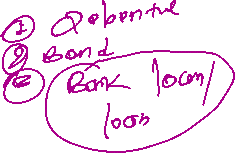 ① Debenture
② Bond
③ Bank loan/
loan